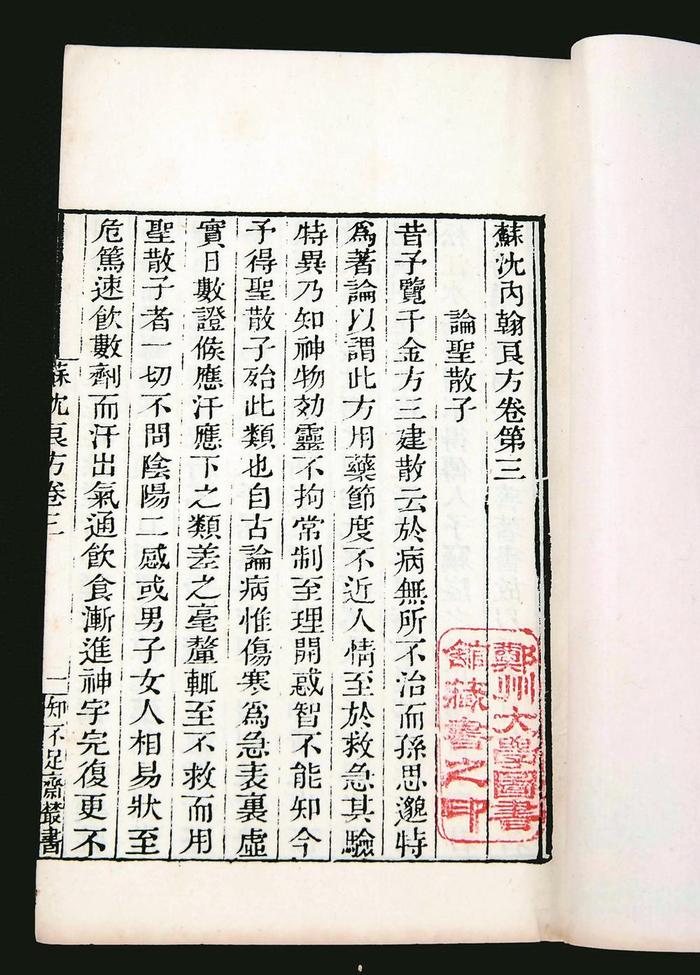 蘇沈內翰良方卷第三
論聖散子
昔予覽千金方三建散云於病無所不治而孫思邈特
爲著論以謂此方用藥節度不近人情至於救急其驗
特異乃知神物効靈不拘常制至理開惑智不能知今
予得聖散子殆此類也自古論病惟傷寒爲急表裏虛
實日數證候應汗應下之類差之毫釐輒至不救而用
聖散子者一切不問陰陽二感或男子女人相易狀至
危篤速飲數劑而汗出氣通飲食漸進神宇完復更不
蘇沈良方卷三
一
知不足齋叢書
鄭州大學圖書
館藏書之印